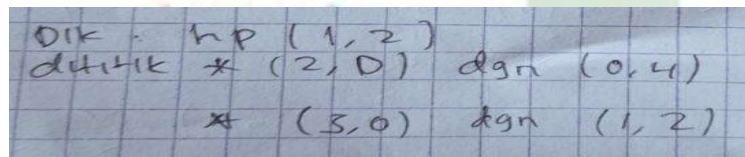 Dik. hp (1,2)
dititik * (2,0) dgn (0,4)
* (3,0) dgn (1,2)